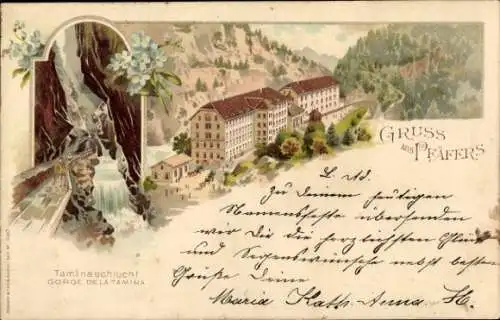 GRUSS
AUS PFÄFERS
L. Ad.
Zu Deinem heutigen
Namensfeste übersenden
wir Dir die herzlichsten Glück
und Segenswünsche nebst besten
Grüße Deine
Maria Kath. Anna H.
Taminaschlucht
GORGE DE LA TAMINA